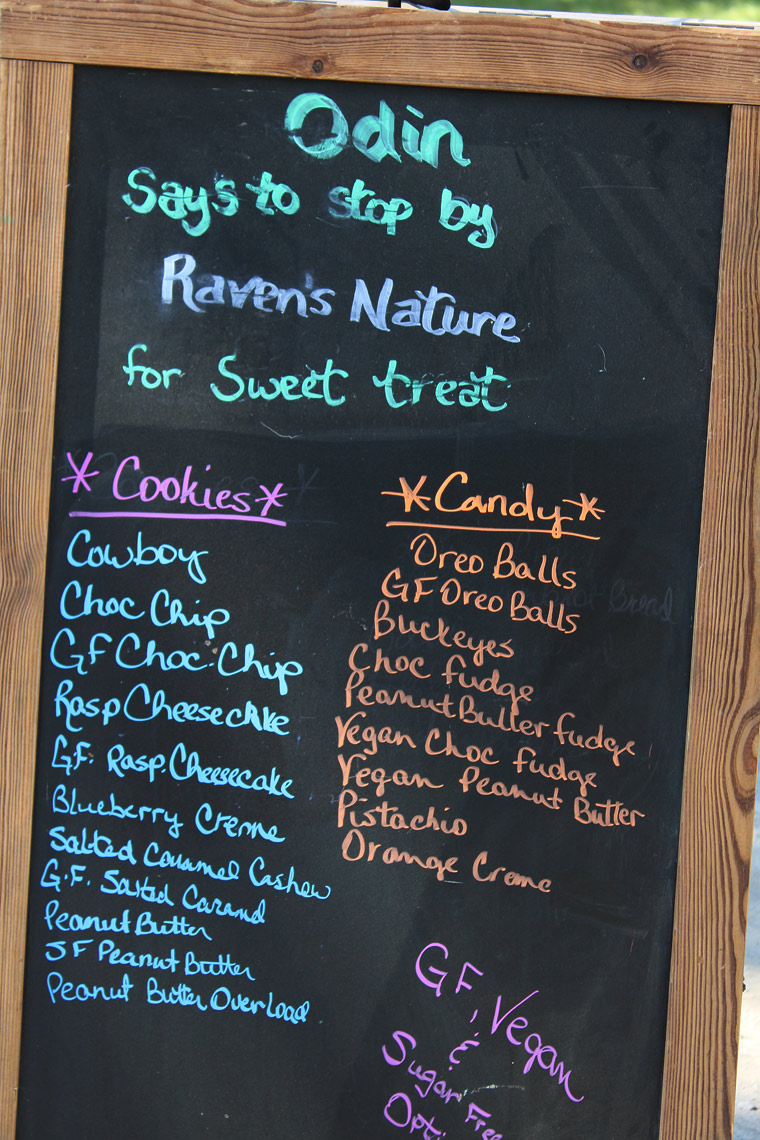 Odin
Says to stop by
Raven's Nature
for Sweet treat
*Cookies*
Cowboy
Choc Chip
GF Choc. Chip
Rasp Cheesecake
G.F. Rasp. Cheesecake
Blueberry Creme
Salted Caramel Cashew
G.F. Salted Caramel
Peanut Butter
SF Peanut Butter
Peanut Butter Overload
*Candy*
Oreo Balls
GF Oreo Balls
Buckeyes
Choc fudge
Peanut Butter fudge
Vegan Choc fudge
Vegan Peanut Butter
Pistachio
Orange Creme
GF, Vegan
&
Sugar Free
Opti